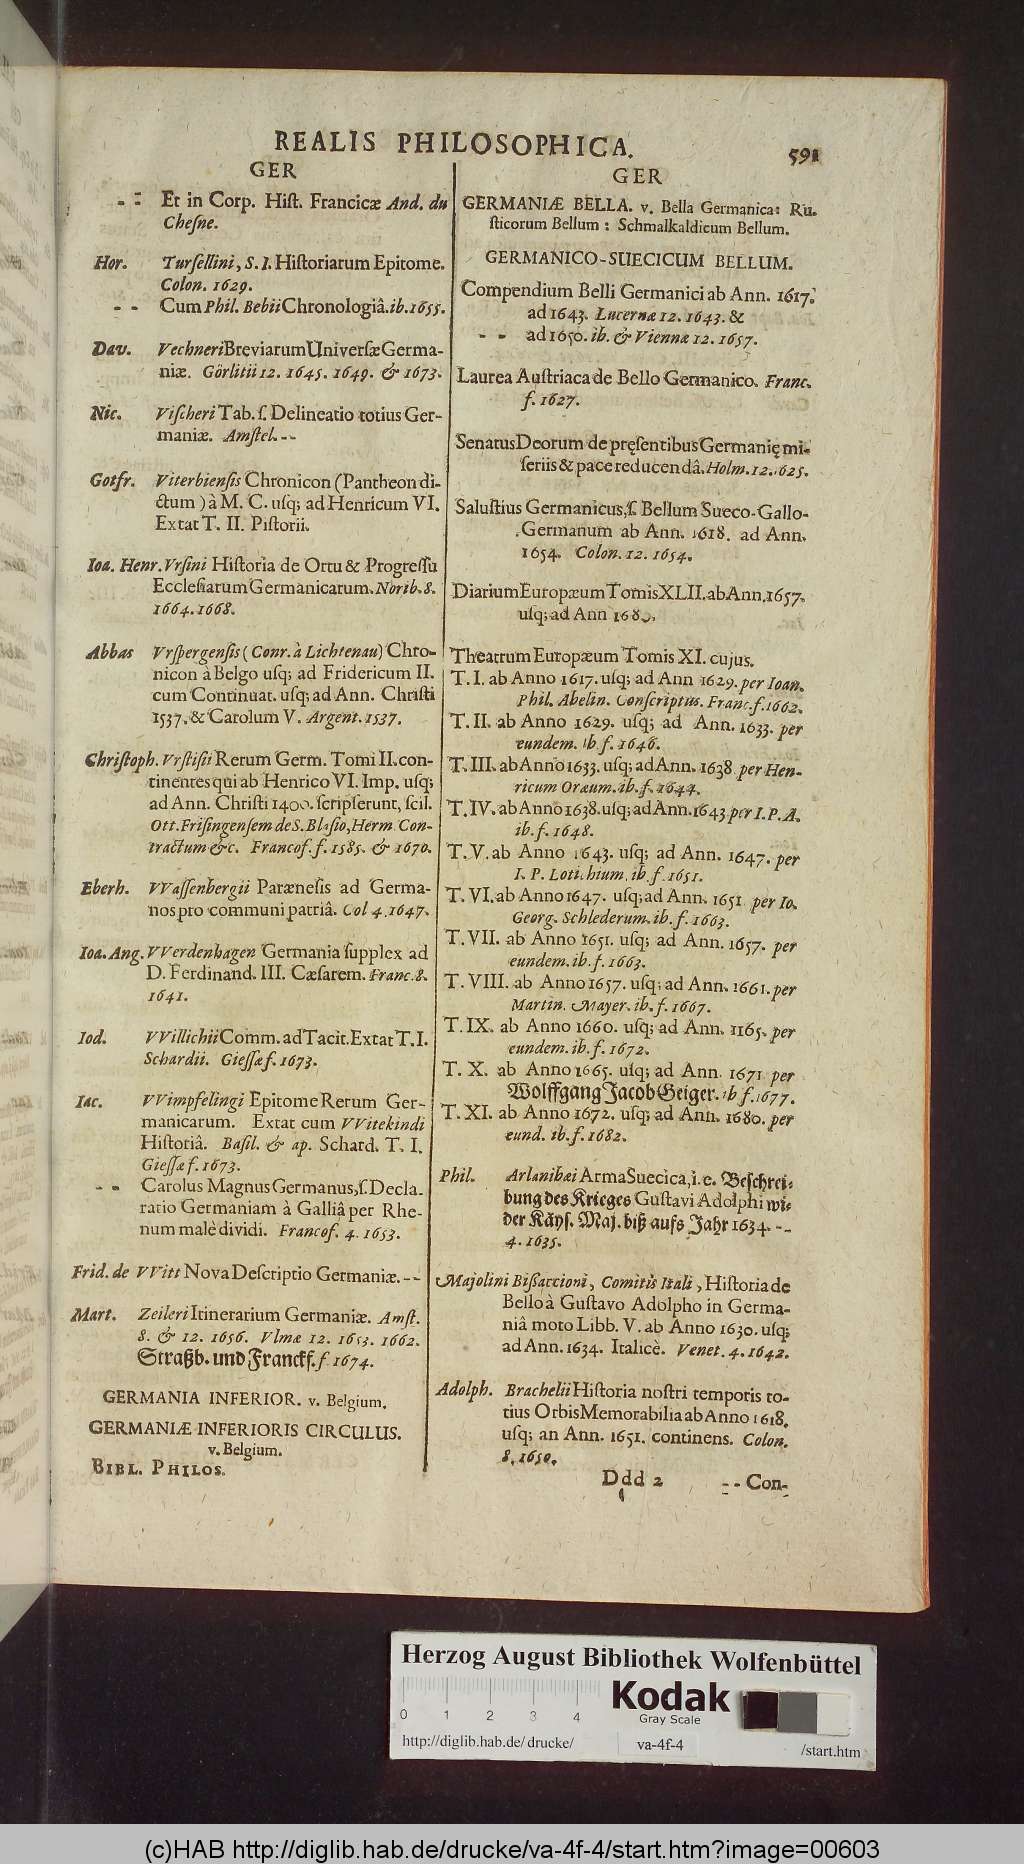 REALIS PHILOSOPHICA.
591
GER
- - Et in Corp. Hist. Francicæ And. du
Chesne.
Hor. Tursellini, S. I. Historiarum Epitome.
Colon. 1629.
- - Cum Phil. Bebii Chronologiâ. ib. 1655.
Dav. Vechneri Breviarum Universæ Germa-
niæ. Görlitii 12. 1645. 1649. & 1673.
Nic. Vischeri Tab. s. Delineatio totius Ger-
maniæ. Amstel. - -
Gotfr. Viterbiensis Chronicon (Pantheon di-
ctum) à M. C. usq; ad Henricum VI.
Extat T. II. Pistorii.
Ioa. Henr. Vrsini Historia de Ortu & Progressu
Ecclesiarum Germanicarum. Norib. 8.
1664. 1668.
Abbas Vrspergensis (Conr. à Lichtenau) Chro-
nicon à Belgo usq; ad Fridericum II.
cum Continuat. usq; ad Ann. Christi
1537. & Carolum V. Argent. 1537.
Christoph. Vrstisii Rerum Germ. Tomi II. con-
tinentes qui ab Henrico VI. Imp. usq;
ad Ann. Christi 1400. scripserunt, scil.
Ott. Frisingensem de S. Blasio, Herm Con-
tractum &c. Francof. f. 1585. & 1670.
Eberh. VVassenbergii Parænesis ad Germa-
nos pro communi patriâ. Col 4. 1647.
Ioa. Ang. VVerdenhagen Germania supplex ad
D. Ferdinand. III. Cæsarem. Franc. 8.
1641.
Iod. VVillichii Comm. ad Tacit. Extat T. I.
Schardii. Giessæ f. 1673.
Iac. VVimpfelingi Epitome Rerum Ger-
manicarum. Extat cum VVitekindi
Historiâ. Basil. & ap. Schard. T. I.
Giessæ f. 1673.
- - Carolus Magnus Germanus, s. Decla-
ratio Germaniam à Galliâ per Rhe-
num malè dividi. Francof. 4. 1653.
Frid. de VVitt Nova Descriptio Germaniæ. - -
Mart. Zeileri Itinerarium Germaniæ. Amst.
8. & 12. 1656. Vlmæ 12. 1653. 1662.
Straßb. und Franckf. f 1674.
GERMANIA INFERIOR. v. Belgium.
GERMANIÆ INFERIORIS CIRCULUS.
v. Belgium.
BIBL. PHILOS.
GER
GERMANIÆ BELLA. v. Bella Germanica: Ru-
sticorum Bellum: Schmalkaldicum Bellum.
GERMANICO-SUECICUM BELLUM.
Compendium Belli Germanici ab Ann. 1617.
ad 1643. Lucernæ 12. 1643. &
- - ad 1650. ib. & Viennæ 12. 1657.
Laurea Austriaca de Bello Germanico. Franc.
f. 1627.
Senatus Deorum de pręsentibus Germanię mi-
seriis & pace reducendâ. Holm. 12. 1625.
Salustius Germanicus, s. Bellum Sueco-Gallo-
Germanum ab Ann. 1618. ad Ann.
1654. Colon. 12. 1654.
Diarium Europæum Tomis XLII. ab Ann. 1657.
usq; ad Ann 1680.
Theatrum Europæum Tomis XI. cujus.
T. I. ab Anno 1617. usq; ad Ann 1629. per Ioan.
Phil. Abelin. Conscriptus. Franc. f. 1662.
T. II. ab Anno 1629. usq; ad Ann. 1633. per
eundem. ib f. 1646.
T. III. ab Anno 1633. usq; ad Ann. 1638 per Hen-
ricum Oræum. ib. f. 1644.
T. IV. ab Anno 1638. usq; ad Ann. 1643 per I. P. A.
ib. f. 1648.
T. V. ab Anno 1643. usq; ad Ann. 1647. per
I. P. Lotichium. ib. f. 1651.
T. VI. ab Anno 1647. usq; ad Ann. 1651 per Io.
Georg. Schlederum. ib. f. 1663.
T. VII. ab Anno 1651. usq; ad Ann. 1657. per
eundem. ib. f. 1663.
T. VIII. ab Anno 1657. usq; ad Ann. 1661. per
Martin. Mayer. ib. f. 1667.
T. IX. ab Anno 1660. usq; ad Ann. 1165. per
eundem. ib. f. 1672.
T. X. ab Anno 1665. usq; ad Ann. 1671 per
Wolffgang Jacob Geiger. ib f. 1677.
T. XI. ab Anno 1672. usq; ad Ann. 1680. per
eund. ib. f. 1682.
Phil. Arlanibæi Arma Suecica, i. e. Beschrei-
bung des Krieges Gustavi Adolphi wi-
der Käys. Maj. biß aufs Jahr 1634. - -
4. 1635.
Majolini Bißaccioni, Comitis Itali, Historia de
Bello à Gustavo Adolpho in Germa-
niâ moto Libb. V. ab Anno 1630. usq;
ad Ann. 1634. Italicè. Venet. 4. 1642.
Adolph. Brachelii Historia nostri temporis to-
tius Orbis Memorabilia ab Anno 1618.
usq; an Ann. 1651. continens. Colon.
8. 1650.
Ddd 2 - - Con-
Herzog August Bibliothek Wolfenbüttel
0 1 2 3 4
Kodak
Gray Scale
http://diglib.hab.de/drucke/ va-4f-4 /start.htm
(c)HAB http://diglib.hab.de/drucke/va-4f-4/start.htm?image=00603